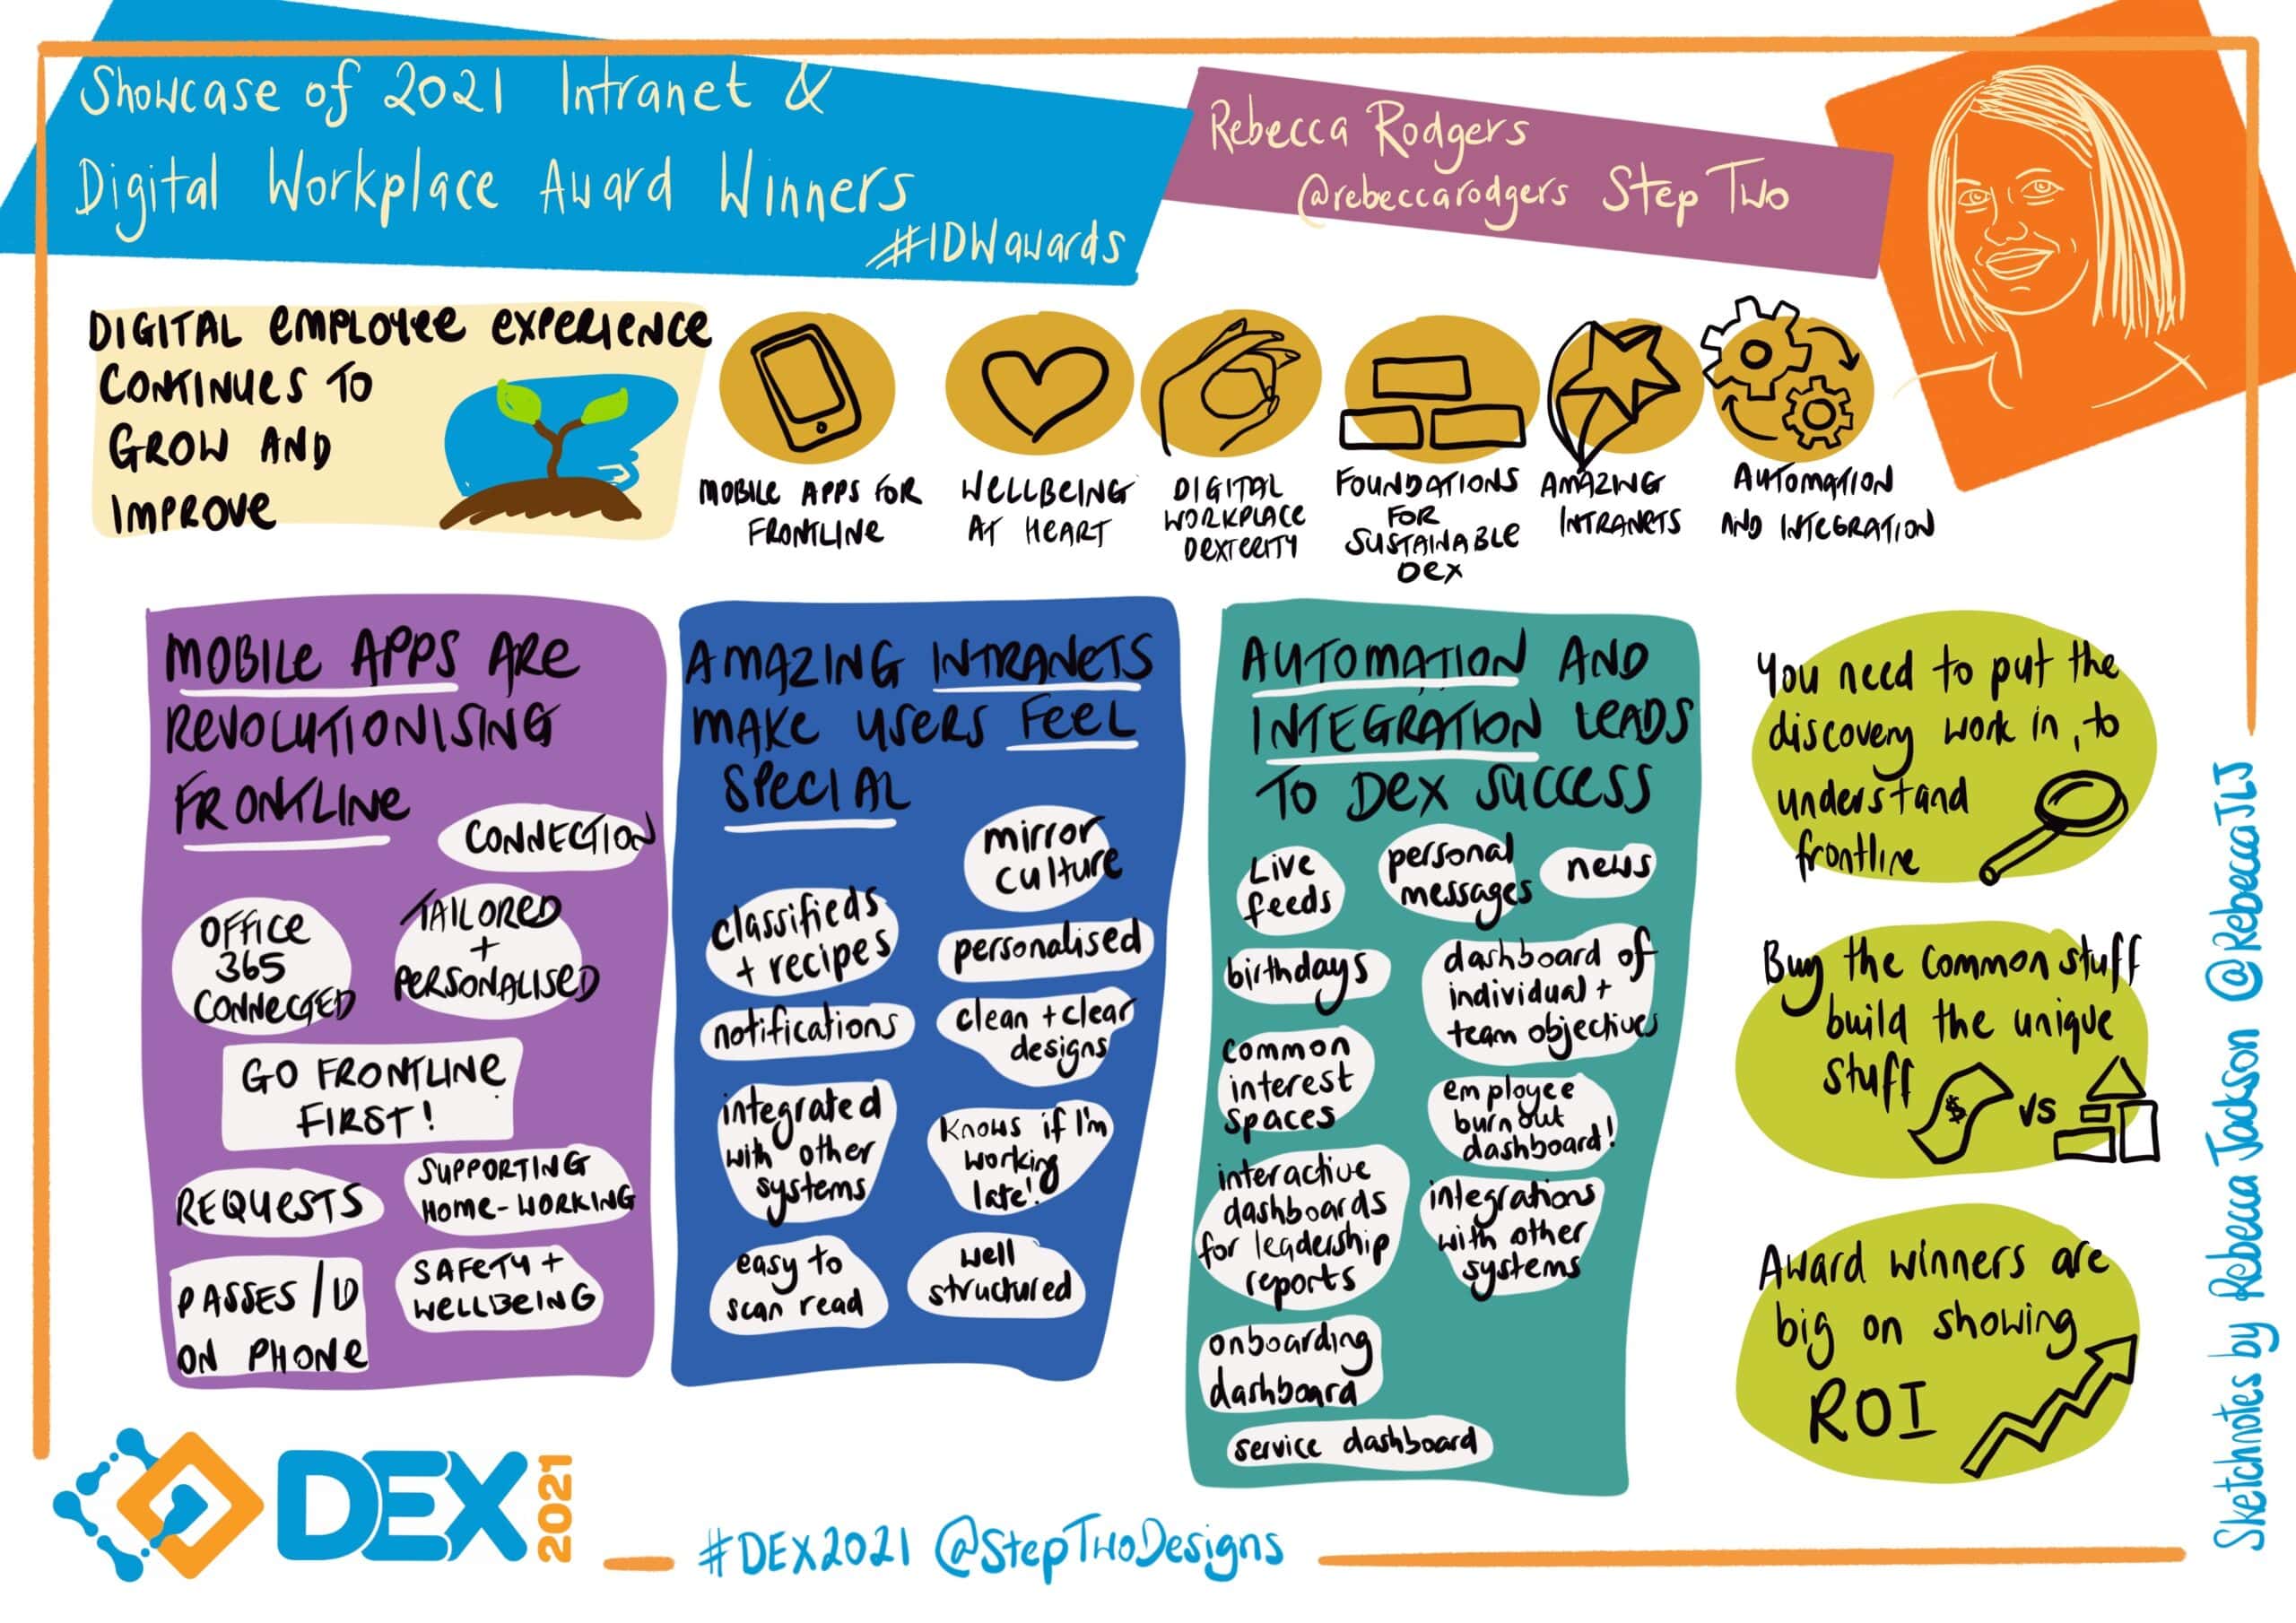 Showcase of 2021 Intranet &
Digital Workplace Award Winners
#IDWawards
Rebecca Rodgers
@rebeccarodgers Step Two
DIGITAL EMPLOYEE EXPERIENCE
CONTINUES TO
GROW AND
IMPROVE
MOBILE APPS FOR
FRONTLINE
WELLBEING
AT HEART
DIGITAL
WORKPLACE
DEXTERITY
FOUNDATIONS
FOR
SUSTAINABLE
DEX
AMAZING
INTRANETS
AUTOMATION
AND INTEGRATION
MOBILE APPS ARE
REVOLUTIONISING
FRONTLINE
CONNECTION
OFFICE
365
CONNECTED
TAILORED
+
PERSONALISED
GO FRONTLINE
FIRST!
REQUESTS
SUPPORTING
HOME-WORKING
PASSES/ID
ON PHONE
SAFETY +
WELLBEING
AMAZING INTRANETS
MAKE USERS FEEL
SPECIAL
mirror
culture
classifieds
+ recipes
personalised
notifications
clean + clear
designs
integrated
with other
systems
Knows if I'm
working
late!
easy to
scan read
well
structured
AUTOMATION AND
INTEGRATION LEADS
TO DEX SUCCESS
Live
feeds
personal
messages
news
birthdays
dashboard of
individual +
team objectives
common
interest
spaces
employee
burnout
dashboard!
interactive
dashboards
for leadership
reports
integrations
with other
systems
onboarding
dashboard
service dashboard
You need to put the
discovery work in, to
understand
frontline
Buy the common stuff
build the unique
stuff
$
vs
Award winners are
big on showing
ROI
DEX
2021
#DEX2021 @StepTwoDesigns
Sketchnotes by Rebecca Jackson @RebeccaJLJ